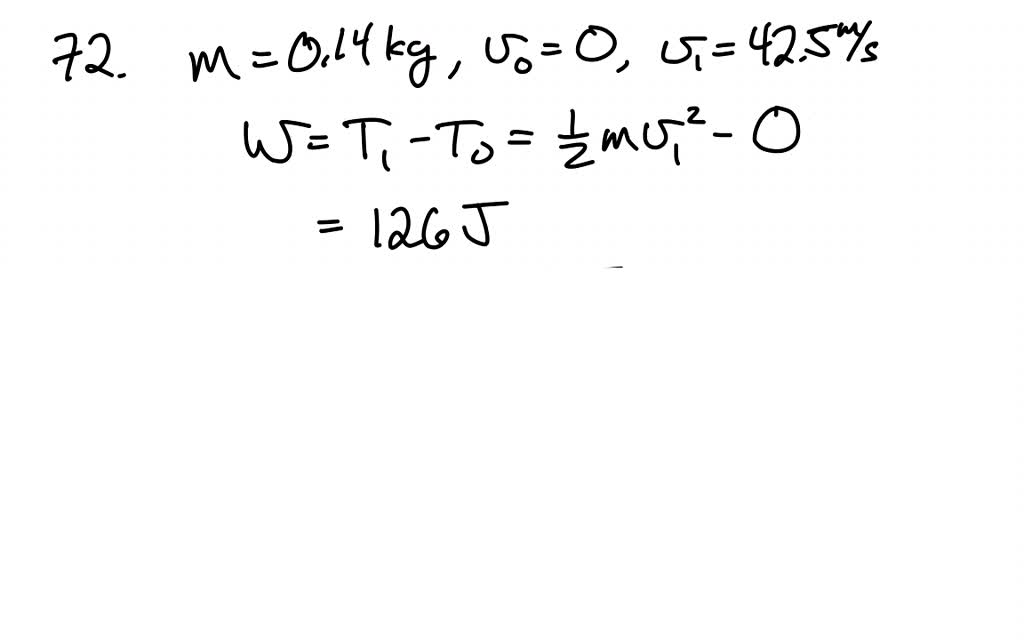 72. m = 0.14 kg, v₀ = 0, v₁ = 42.5 m/s
W = T₁ - T₀ = ½ m v₁² - 0
= 126 J